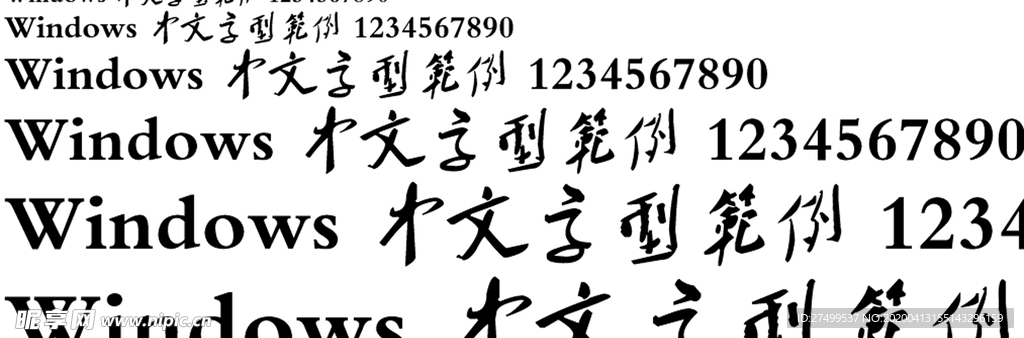 Windows 中文字型範例 1234567890
Windows 中文字型範例 1234567890
Windows 中文字型範例 1234567890
Windows 中文字型範例 1234567890
Windows 中文字型範例 1234
Windows 中文字型範例
昵享网 www.nipic.cn
ID:27499537 NO:20200413155143295159